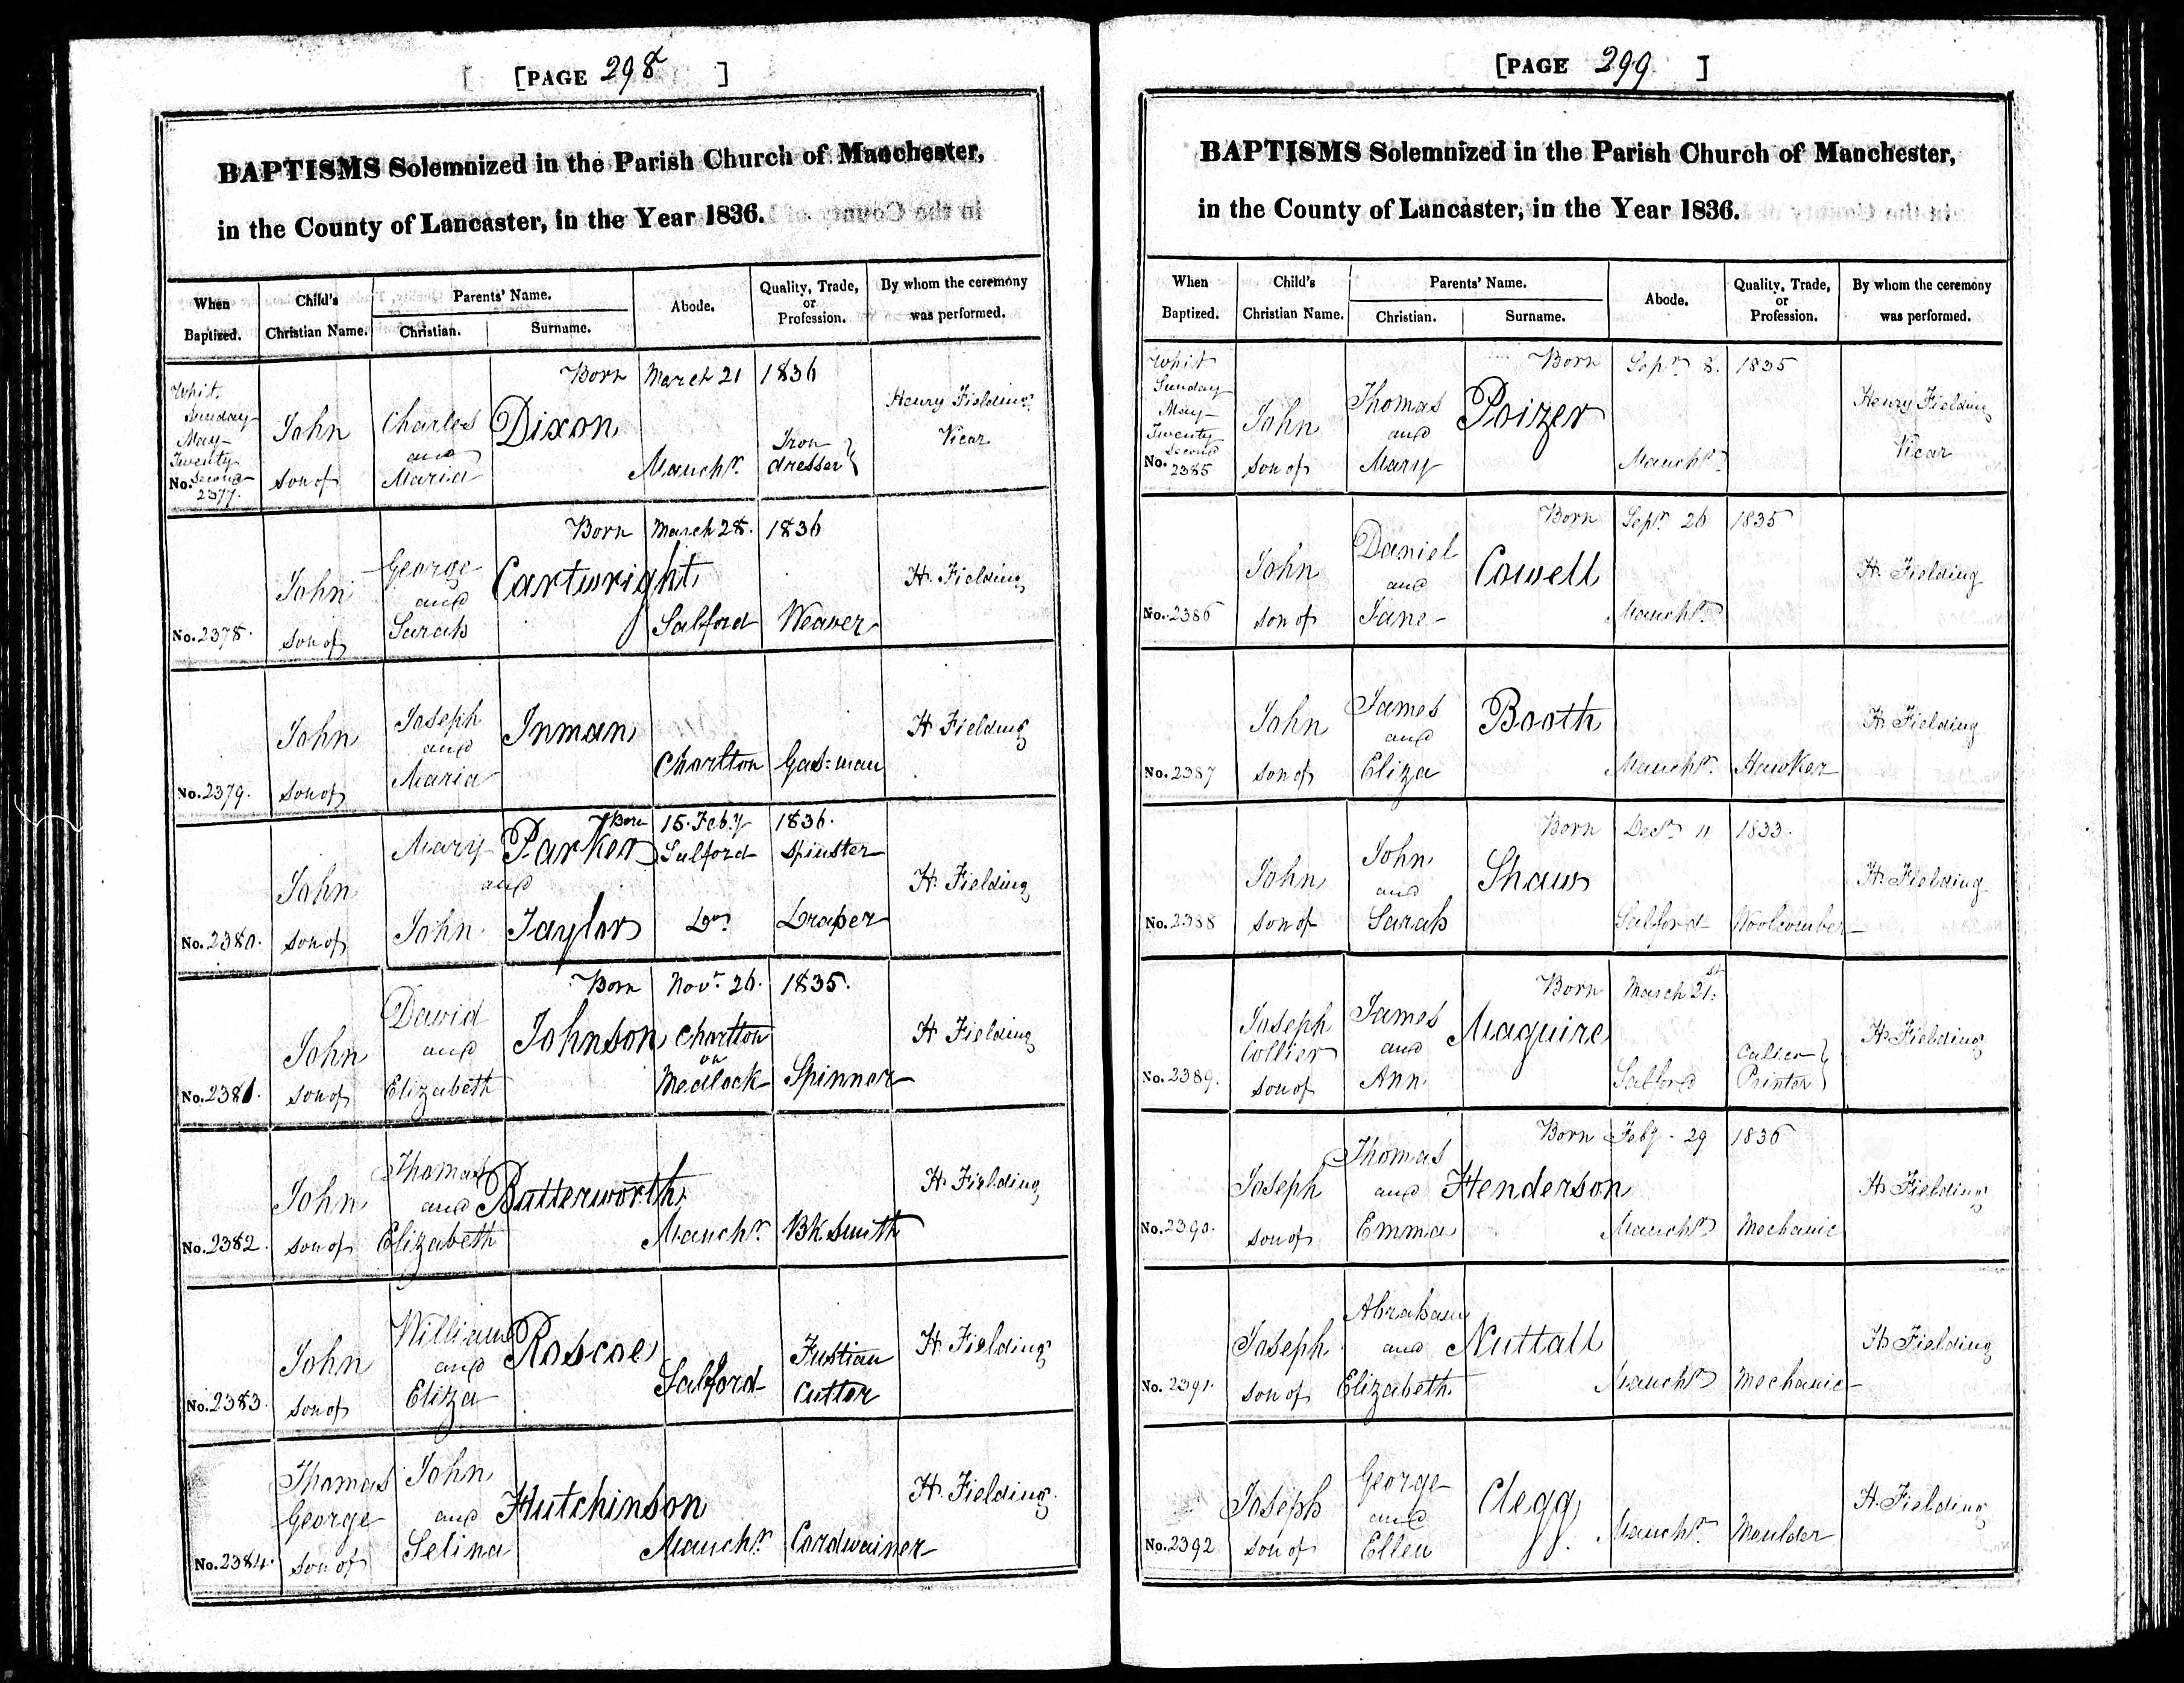 [PAGE 298 ]
BAPTISMS Solemnized in the Parish Church of Manchester,
in the County of Lancaster, in the Year 1836.
When Baptized. Child's Christian Name. Parents' Name. Christian. Surname. Abode. Quality, Trade, or Profession. By whom the ceremony was performed.
Born March 21 1836
Whit
Sunday
May
Twenty
Second
No. 2377.
John
son of
Charles
and
Maria
Dixon
Manchr.
Iron
dresser
Henry Fielding
Vicar
Born March 28. 1836
No. 2378.
John
son of
George
and
Sarah
Cartwright
Salford
Weaver
H. Fielding
No. 2379.
John
son of
Joseph
and
Maria
Inman
Chorlton
Gas=man
H Fielding
Born 15. Feb.y 1836.
No. 2380.
John
son of
Mary Parker Salford Spinster
and
John Taylor Do. Draper
H. Fielding
Born Novr. 26. 1835.
No. 2381.
John
son of
David
and
Elizabeth
Johnson
Chorlton
on
Medlock
Spinner
H Fielding
No. 2382.
John
son of
Thomas
and
Elizabeth
Butterworth
Manchr.
Bk. Smith
H. Fielding
No. 2383.
John
son of
William
and
Eliza
Roscoe
Salford
Fustian
Cutter
H Fielding
No. 2384.
Thomas
George
son of
John
and
Selina
Hutchinson
Manchr.
Cordwainer
H. Fielding.
[PAGE 299 ]
BAPTISMS Solemnized in the Parish Church of Manchester,
in the County of Lancaster, in the Year 1836.
When Baptized. Child's Christian Name. Parents' Name. Christian. Surname. Abode. Quality, Trade, or Profession. By whom the ceremony was performed.
Born Sepr. 8. 1835
Whit
Sunday
May
Twenty
Second
No. 2385
John
son of
Thomas
and
Mary
Poizer
Manchr.
Henry Fielding
Vicar
Born Sepr. 26 1835
No. 2386
John
son of
Daniel
and
Jane
Cowell
Manchr.
H. Fielding
No. 2387
John
son of
James
and
Eliza
Booth
Manchr.
Hawker
H. Fielding
Born Decr. 11 1833.
No. 2388
John
son of
John
and
Sarah
Shaw
Salford
Woolcomber
H. Fielding
Born March 21st.
No. 2389.
Joseph
Collier
son of
James
and
Ann
Maguire
Salford
Calico
Printer
H. Fielding
Born Feby. 29 1836
No. 2390.
Joseph
son of
Thomas
and
Emma
Henderson
Manchr.
Mechanic
H. Fielding
No. 2391.
Joseph
son of
Abraham
and
Elizabeth
Nuttall
Manchr.
Mechanic
H. Fielding
No. 2392
Joseph
son of
George
and
Ellen
Clegg
Manchr.
Moulder
H. Fielding